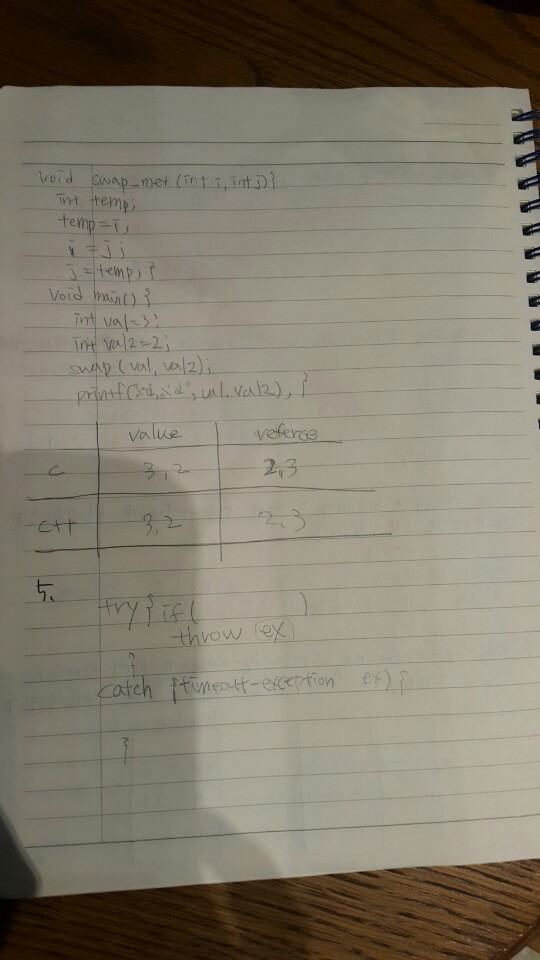 void swap_met (int i, int j) {
int temp;
temp = i;
i = j;
j = temp; }
void main() {
int val = 3;
int val2 = 2;
swap (val, val2);
printf("%d, %d", val, val2); }
value referce
C 3,2 2,3
C++ 3,2 2,3
5.
try { if ( )
throw (ex)
}
catch (timeout-exception ex) {
}